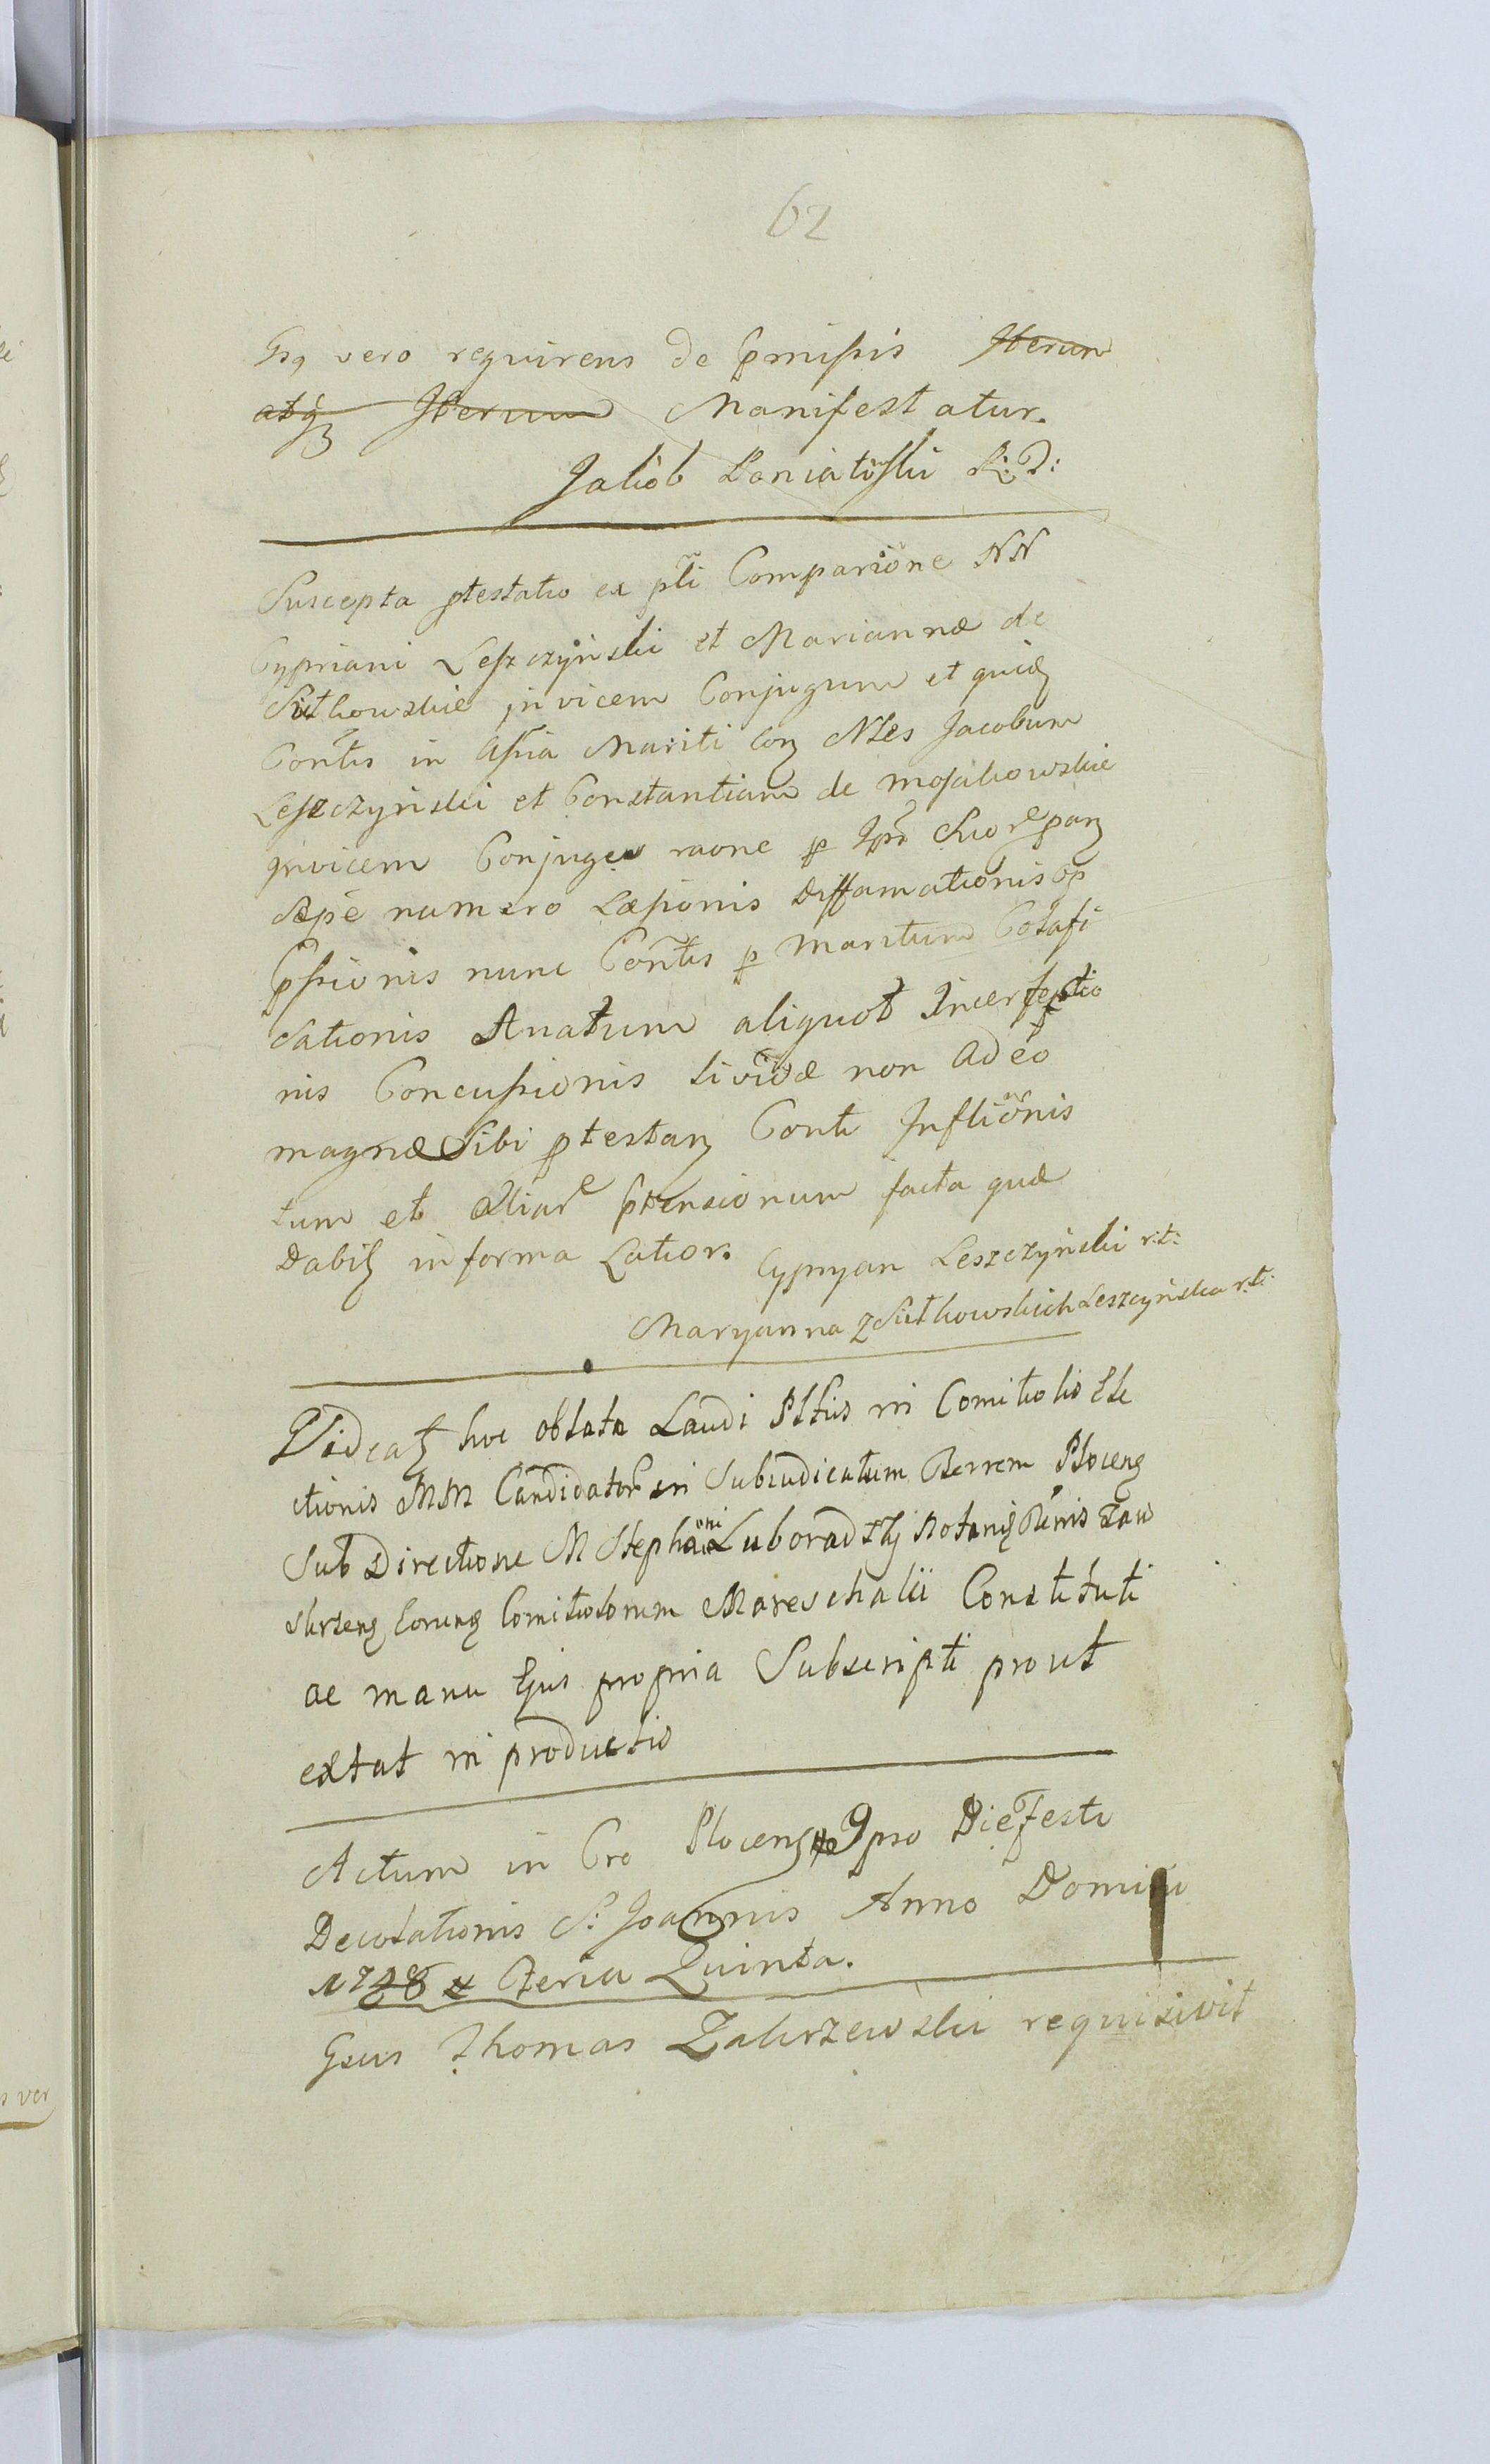 62
Gsq vero requirens de Pmissis Iterum
atq Iterum Manifestatur.
Jakob Poniatoski R: D:
Suscepta ptestatio ex pti Comparione NN
Cypriani Leszczyński et Mariannæ de
Sutkowskie invicem Conjugum et quidē
Contis in assia Mariti Con Nles Jacobum
Leszczyński et Constantiam de mosakowskie
invicem Conjuges raone p
sæpe numero Læsionis Diffamationis op
pssionis nunc Contis p Maritum Colafi
sationis Anatum aliquot Interfectio
nis Concussionis lividæ non Adeo
magnæ Sibi ptestan Conti Inflionis
tum et aliar ptensionum facta quæ
Dabit in forma Latior. Cypryan Leszczyński r.t:
Maryanna z Sutkowskich Leszczyńska r.t.
Videat hic oblata Laudi Pltus in Comitiolis Ele
ctionis MM Candidator in Subiudicatum Terrem Plocens
Sub Directione M Stephani Luboradzki Notarii Ttris Zaw
skrzens Eorung Comitiolorum Mareschalii Constituti
ac manu Ejus propria Subscripti prout
extat in productis
Actum in Cro Plocens Ipso Die Festi
Decolationis S: Joannis Anno Domini
1748 Feria Quinta.
Gsus Thomas Zakrzewski requisivit
s ver